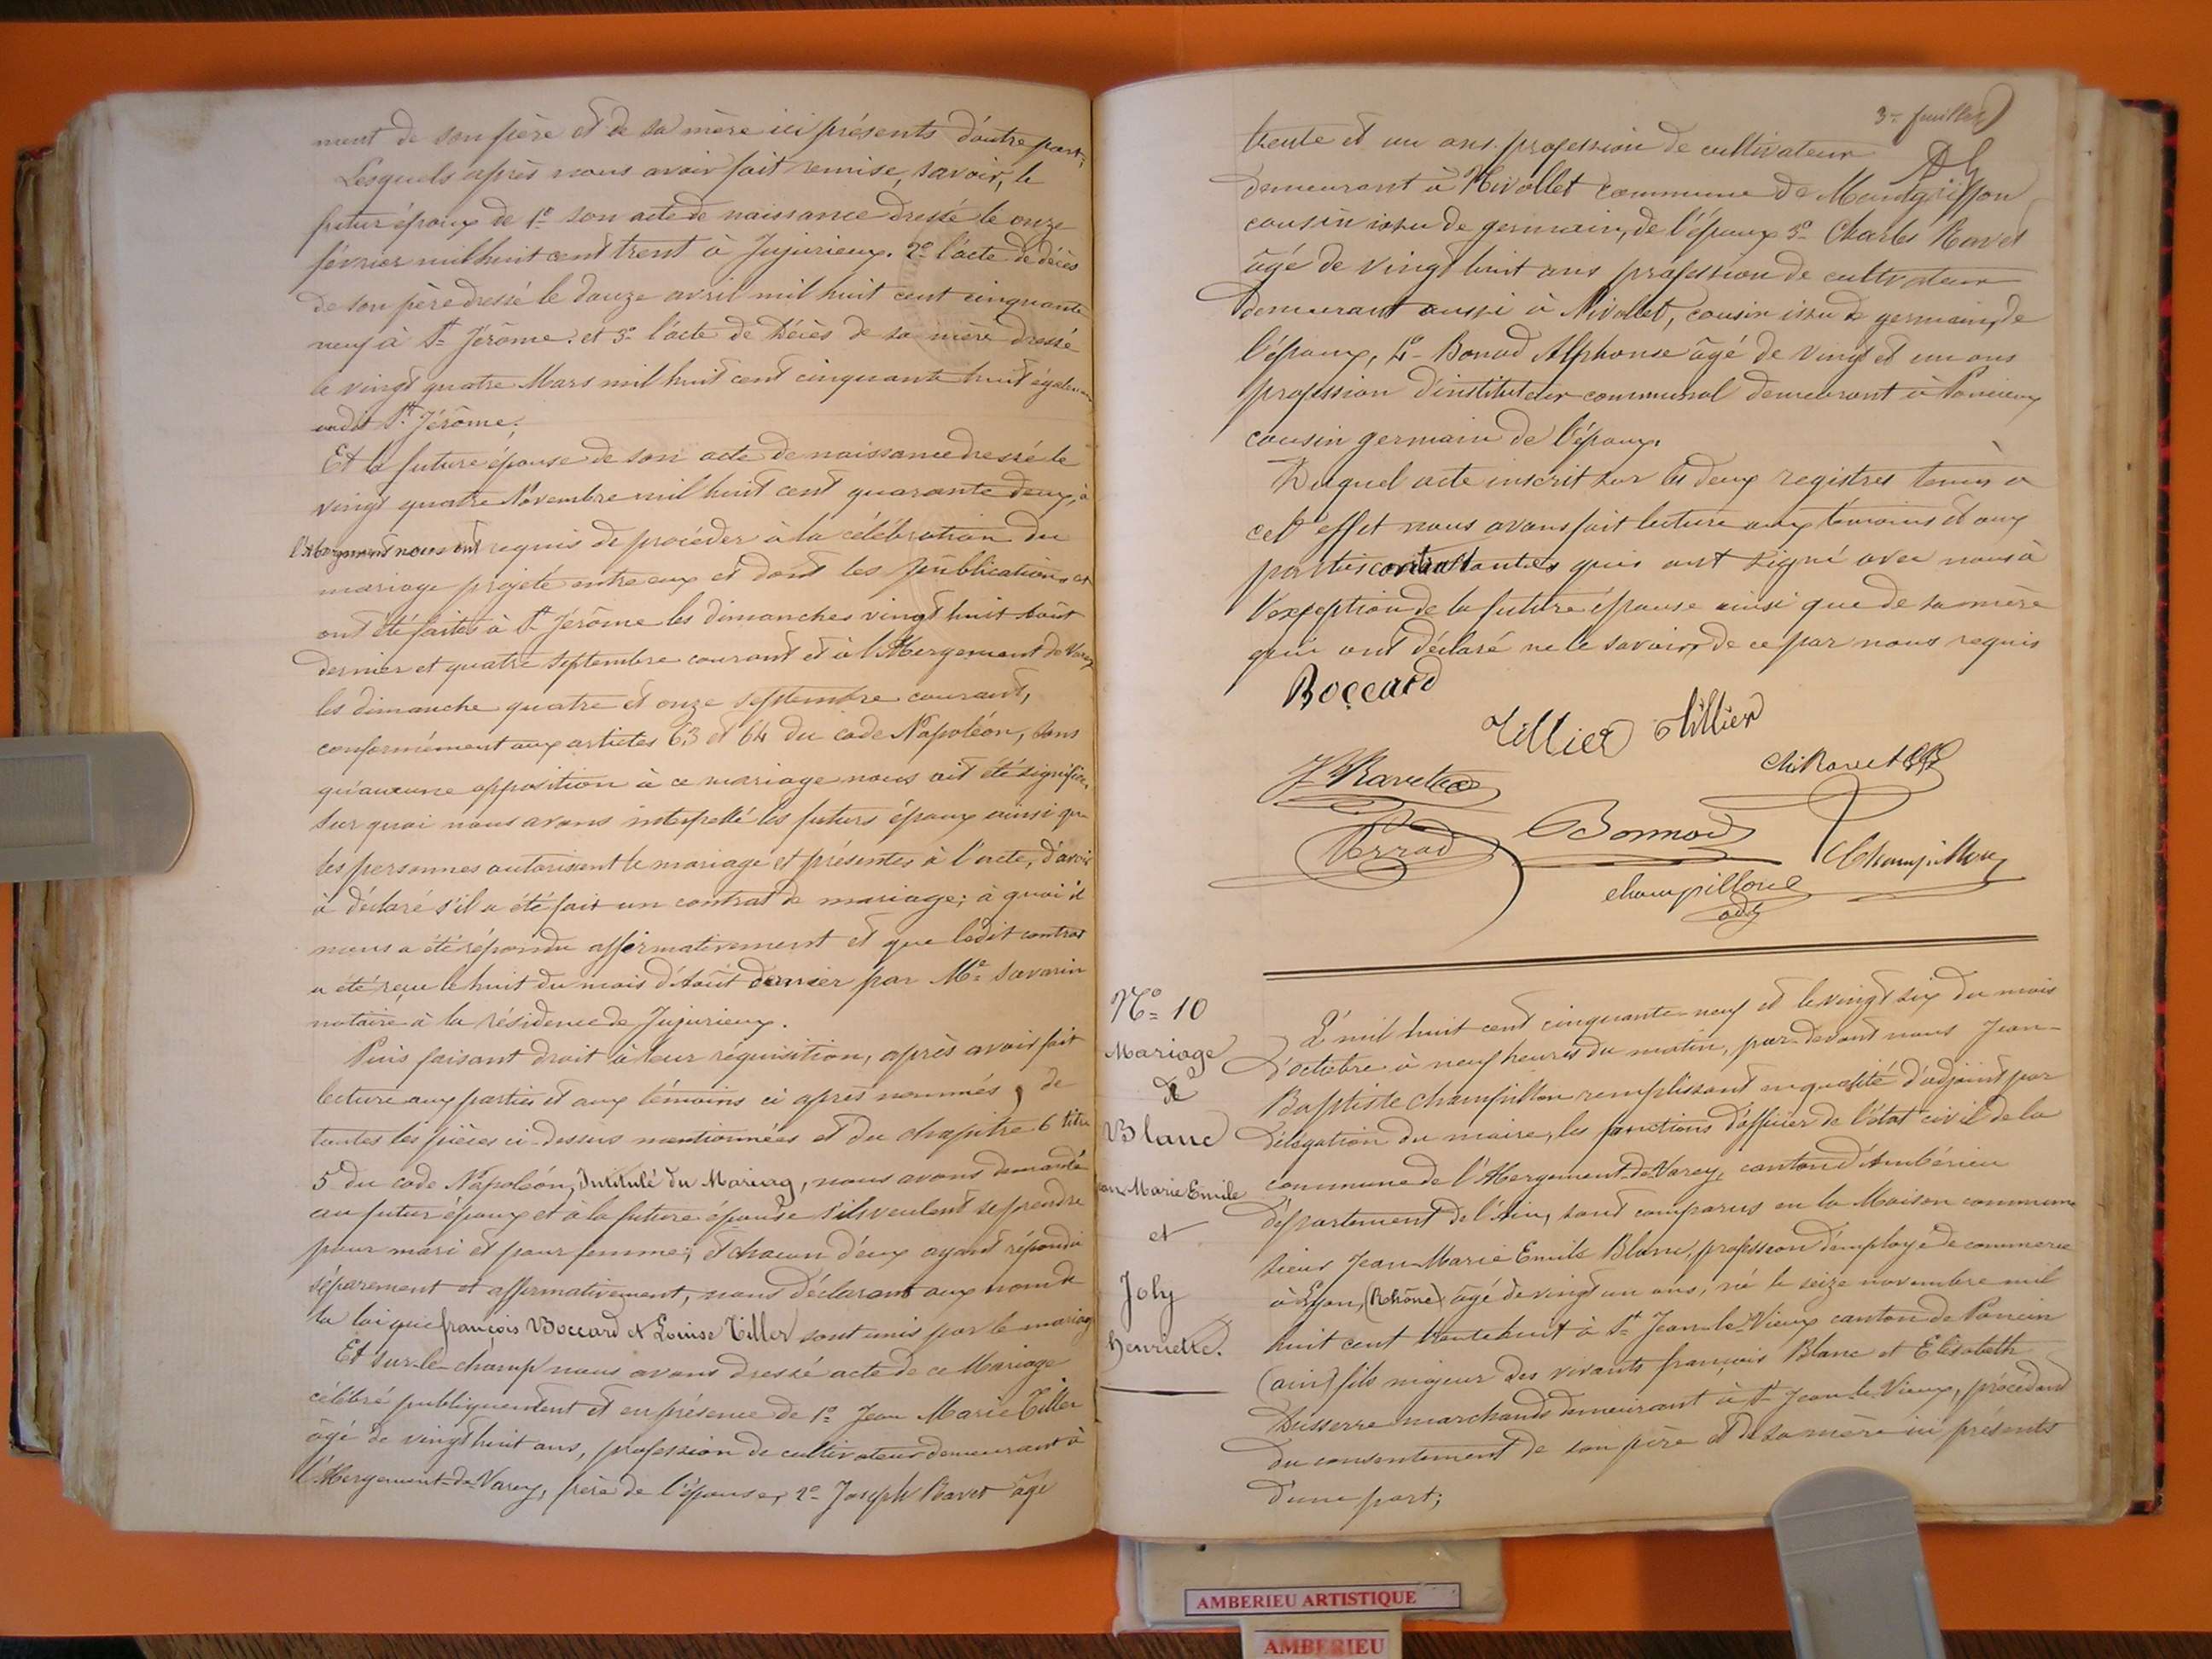 ment de son père et de sa mère ici présents d'autre part;
Lesquels après nous avoir fait remise, savoir, le
futur époux de 1º son acte de naissance dressé le onze
février mil huit cent trent à Jujurieux. 2º l'acte de décès
de son père dressé le douze avril mil huit cent cinquante
neuf à St Jérôme. et 3º l'acte de Décès de sa mère dressé
le vingt quatre Mars mil huit cent cinquante huit
audit St Jérôme.
Et la future épouse de son acte de naissance dressé le
vingt quatre Novembre mil huit cent quarante deux, à
l'Abergement nous ont requis de procéder à la célébration du
mariage projeté entre eux et dont les publications
ont été faites à St Jérôme les dimanches vingt huit Août
dernier et quatre Septembre courant et à l'Abergement de Varey
les dimanche quatre et onze Septembre courant,
conformément aux articles 63 et 64 du code Napoléon, sans
qu'aucune opposition à ce mariage nous ait été signifiée,
sur quoi nous avons interpellé les futurs époux ainsi que
les personnes autorisant le mariage et présentes à l'acte, d'avoir
à déclaré s'il a été fait un contrat de mariage; à quoi il
nous a été répondu affirmativement et que ledit contrat
a été reçu le huit du mois d'Août dernier par Me Savarin
notaire à la résidence de Jujurieux.
Puis faisant droit à leur réquisition, après avoir fait
lecture aux parties et aux témoins ci après nommés, de
toutes les pièces ci-dessus mentionnées et du chapitre 6 titre
5 du code Napoléon, Intitulé du Mariag, nous avons demandé
au futur époux et à la future épouse s'ils veulent se prendre
pour mari et pour femme; et chacun d'eux ayant répondu
séparement et affirmativement, nous déclarons aux nom de
la loi que françois Boccard et Louise Tiller sont unis par le mariag
Et sur-le-champ nous avons dressé acte de ce Mariage
célébré publiquement et en présence de 1º Jean Marie Tiller
âgé de vingt huit ans, profession de cultivateur demeurant à
l'Abergement-de-Varey, frère de l'épouse, 2º Joseph Ravet âgé
3me feuillet
trente et un ans profession de cultivateur
demeurant à Nivollet commune de Montgriffon
cousin issu de germain, de l'époux 3º Charles Ravet
âgé de vingt huit ans profession de cultivateur
demeurant aussi à Nivollet, cousin issu de germain, de
l'époux, 4º Bonod Alphonse âgé de vingt et un ans
profession d'instituteur communal demeurant à Poncieux
cousin germain de l'époux.
Duquel acte inscrit sur les deux registres tenus à
cet effet nous avons fait lecture aux témoins et aux
parties contractantes qui ont signé avec nous à
l'exception de la future épouse ainsi que de sa mère
qui ont déclaré ne le savoir, de ce par nous requis
Boccard
Tillier Tillier
J Ravet
Ch Ravet
Bonnod
Champillon
champillon
adj
Nº 10
Mariage
de
Blanc
Jean Marie Emile
et
Joly
henriette.
L'mil huit cent cinquante-neuf et le vingt six du mois
d'octobre à neuf heures du matin, par-devant nous Jean-
Baptiste Champillon remplissant en qualité d'adjoint par
délégation du maire, les fonctions d'officier de l'état civil de la
commune de l'Abergement-de-Varey, canton d'Ambérieu
département de l'Ain, sont comparus en la Maison commune
sieur Jean Marie Emile Blanc, profession d'employé de commerce
à Lyon, (Rhône) âgé de vingt un ans, né le seize novembre mil
huit cent trente huit à St Jean-le-Vieux canton de Poncin
(ain) fils majeur des vivants françois Blanc et Elisabeth
Disserre marchands demeurant à St Jean-le-Vieux, procédant
du consentement de son père et de sa mère ici presents
d'une part;
AMBERIEU ARTISTIQUE
AMBERIEU